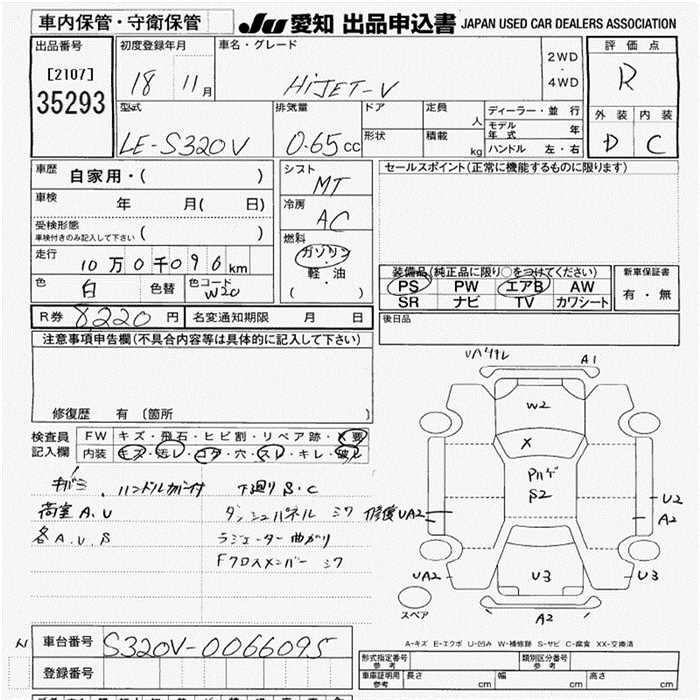 車内保管・守衛保管
JU 愛知 出品申込書 JAPAN USED CAR DEALERS ASSOCIATION
出品番号
[2107]
35293
初度登録年月
18 11月
車名・グレード
HiJET-V
2WD
・
4WD
評価点
R
外装 内装
D C
型式
LE-S320V
排気量
0.65cc
ドア
形状
定員 人
積載 kg
ディーラー・並行
モデル年式 年
ハンドル 左・右
車歴 自家用・( )
車検 年 月( 日)
受検形態
車検付きのみ記入して下さい ( )
走行 10万0千096km
色 白 色替 色コード W20
シフト
MT
冷房
AC
燃料
ガソリン
・
軽・油
( )
セールスポイント(正常に機能するものに限ります)
装備品(純正品に限り○をつけてください)
PS PW エアB AW
SR ナビ TV カワシート
新車保証書
有・無
R券 8220円 名変通知期限 月 日
後日品
注意事項申告欄(不具合内容等は具体的に記入して下さい)
修復歴 有 (箇所 )
検査員
記入欄
FW キズ・飛石・ヒビ割・リペア跡・X要
内装 キズ・汚レ・コゲ・穴・スレ・キレ・破レ
キバミ、ハンドルカバー付 下廻りS・C
荷室A.U ダッシュパネル シワ 修復
各A.U.S ラジエーター曲がり
Fクロスメンバー シワ
A1
W2
X
Pハゲ
S2
UA2
U2
A2
UA2
U3
U3
A2
スペア
A-キズ E-エクボ U-凹み W-補修跡 S-サビ C-腐食 XX-交換済
車台番号 S320V-0066095
登録番号
形式指定番号
参考
類別区分番号
参考
車庫証明用
参考
長さ cm 幅 cm 高さ cm